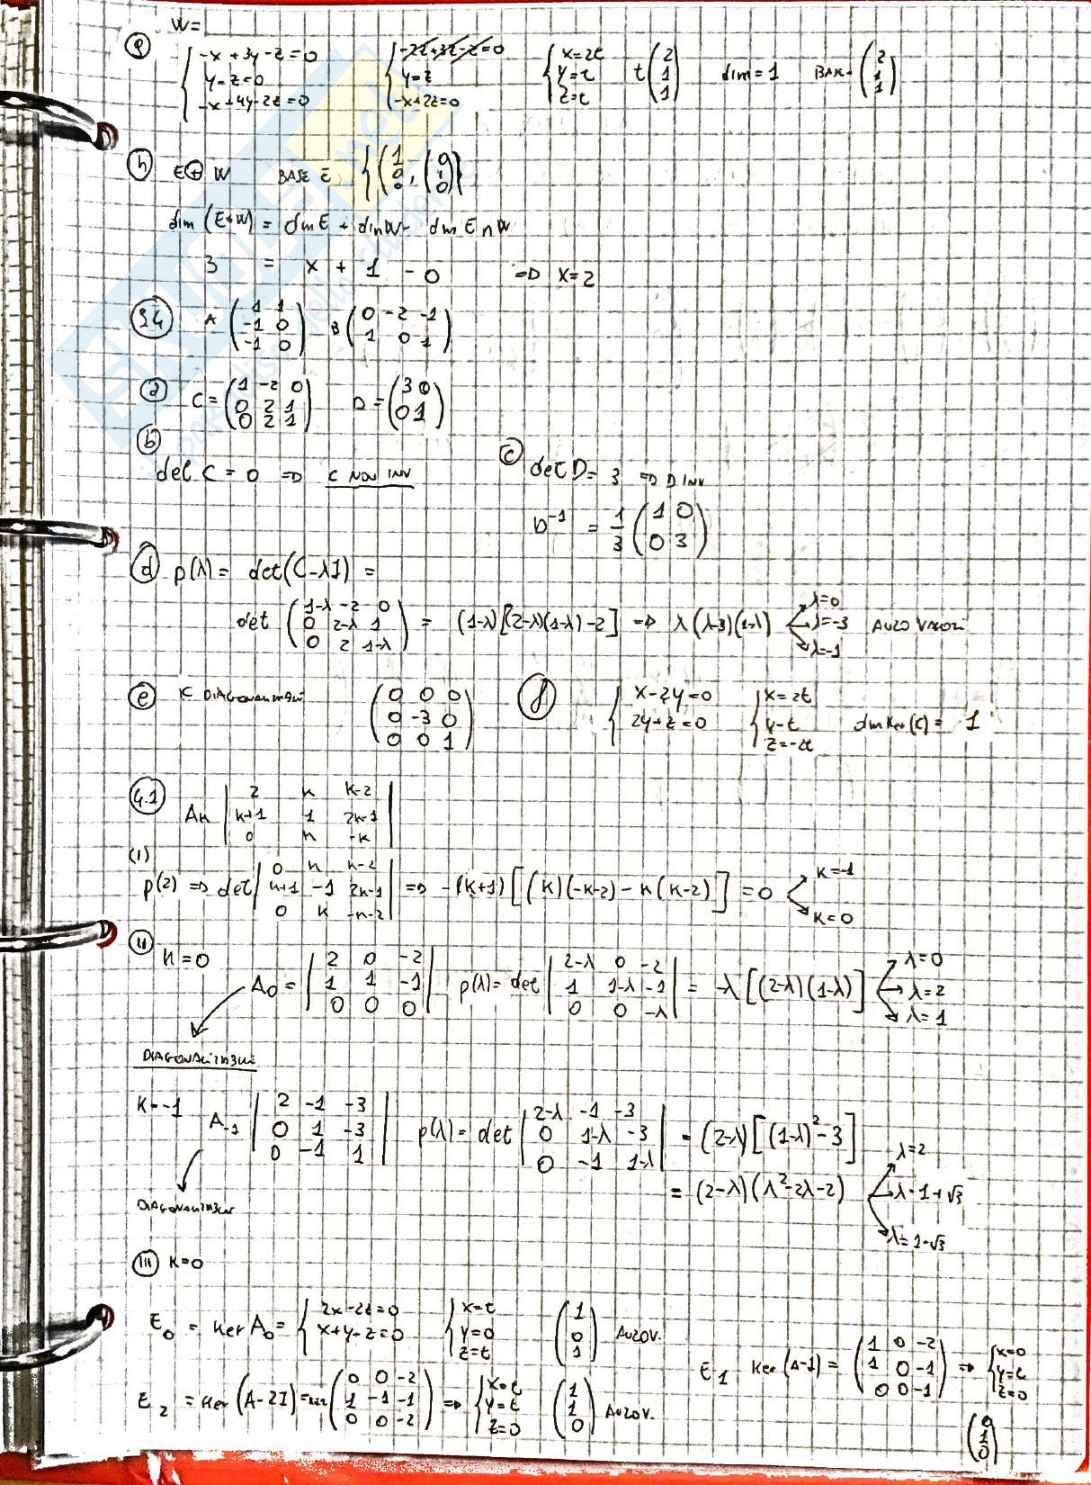 W=
g { -x + 3y - z = 0 { -2z + 3z - z = 0 { x = 2t t (2 1 1) dim = 1 BASE (2 1 1)
y - z = 0 y = z y = t
-x + 4y - 2z = 0 -x + 2z = 0 z = t
h E ⊕ W BASE E {(1 0 0), (0 1 0)}
dim (E+W) = dim E + dim W - dim E ∩ W
3 = x + 1 - 0 => x = 2
3.4 A (1 1 / -1 0 / -1 0) B (0 -2 -1 / 1 0 1)
a C = (1 -2 0 / 0 2 1 / 0 2 1) D = (3 0 / 0 1)
b
det C = 0 => C NON INV
c det D = 3 => D INV
D⁻¹ = 1/3 (1 0 / 0 3)
d p(λ) = det(C-λI) =
det (1-λ -2 0 / 0 2-λ 1 / 0 2 1-λ) = (1-λ)[2-λ)(1-λ) - 2] => λ(λ-3)(1-λ) λ=0
λ=-3 AUTOVALORI
λ=1
e C DIAGONALIZZABILE (0 0 0 / 0 -3 0 / 0 0 1)
f { x - 2y = 0 { x = 2t
2y + z = 0 y = t dim Ker(C) = 1
z = -2t
4.1 Ak | 2 k k-2 / k+1 1 2k-1 / 0 k -k |
(i)
p(2) => det | 0 k k-2 / k+1 -1 2k-1 / 0 k -k-2 | => -(k+1)[(k)(-k-2) - k(k-2)] = 0 k=-1
k=0
ii k=0
A₀ = | 2 0 -2 / 1 1 -1 / 0 0 0 | p(λ) = det | 2-λ 0 -2 / 1 1-λ -1 / 0 0 -λ | = -λ[(2-λ)(1-λ)] λ=0
λ=2
λ=1
DIAGONALIZZABILE
k=-1 A₋₁ | 2 -1 -3 / 0 1 -3 / 0 -1 1 | p(λ) = det | 2-λ -1 -3 / 0 1-λ -3 / 0 -1 1-λ | = (2-λ)[(1-λ)² - 3]
= (2-λ)(λ²-2λ-2) λ=2
λ=1+√3
λ=1-√3
DIAGONALIZZABILE
iii k=0
E₀ = Ker A₀ = { 2x - 2z = 0 { x = t (1 0 1) AUTOV.
x + y - z = 0 y = 0
z = t
E₁ Ker (A-1) = (1 0 -2 / 1 0 -1 / 0 0 -1) => { x=0
y=t
z=0
(0 1 0)
E₂ = Ker (A-2I) = Ker (0 0 -2 / 1 -1 -1 / 0 0 -2) => { x=t (1 1 0) AUTOV.
y=t
z=0